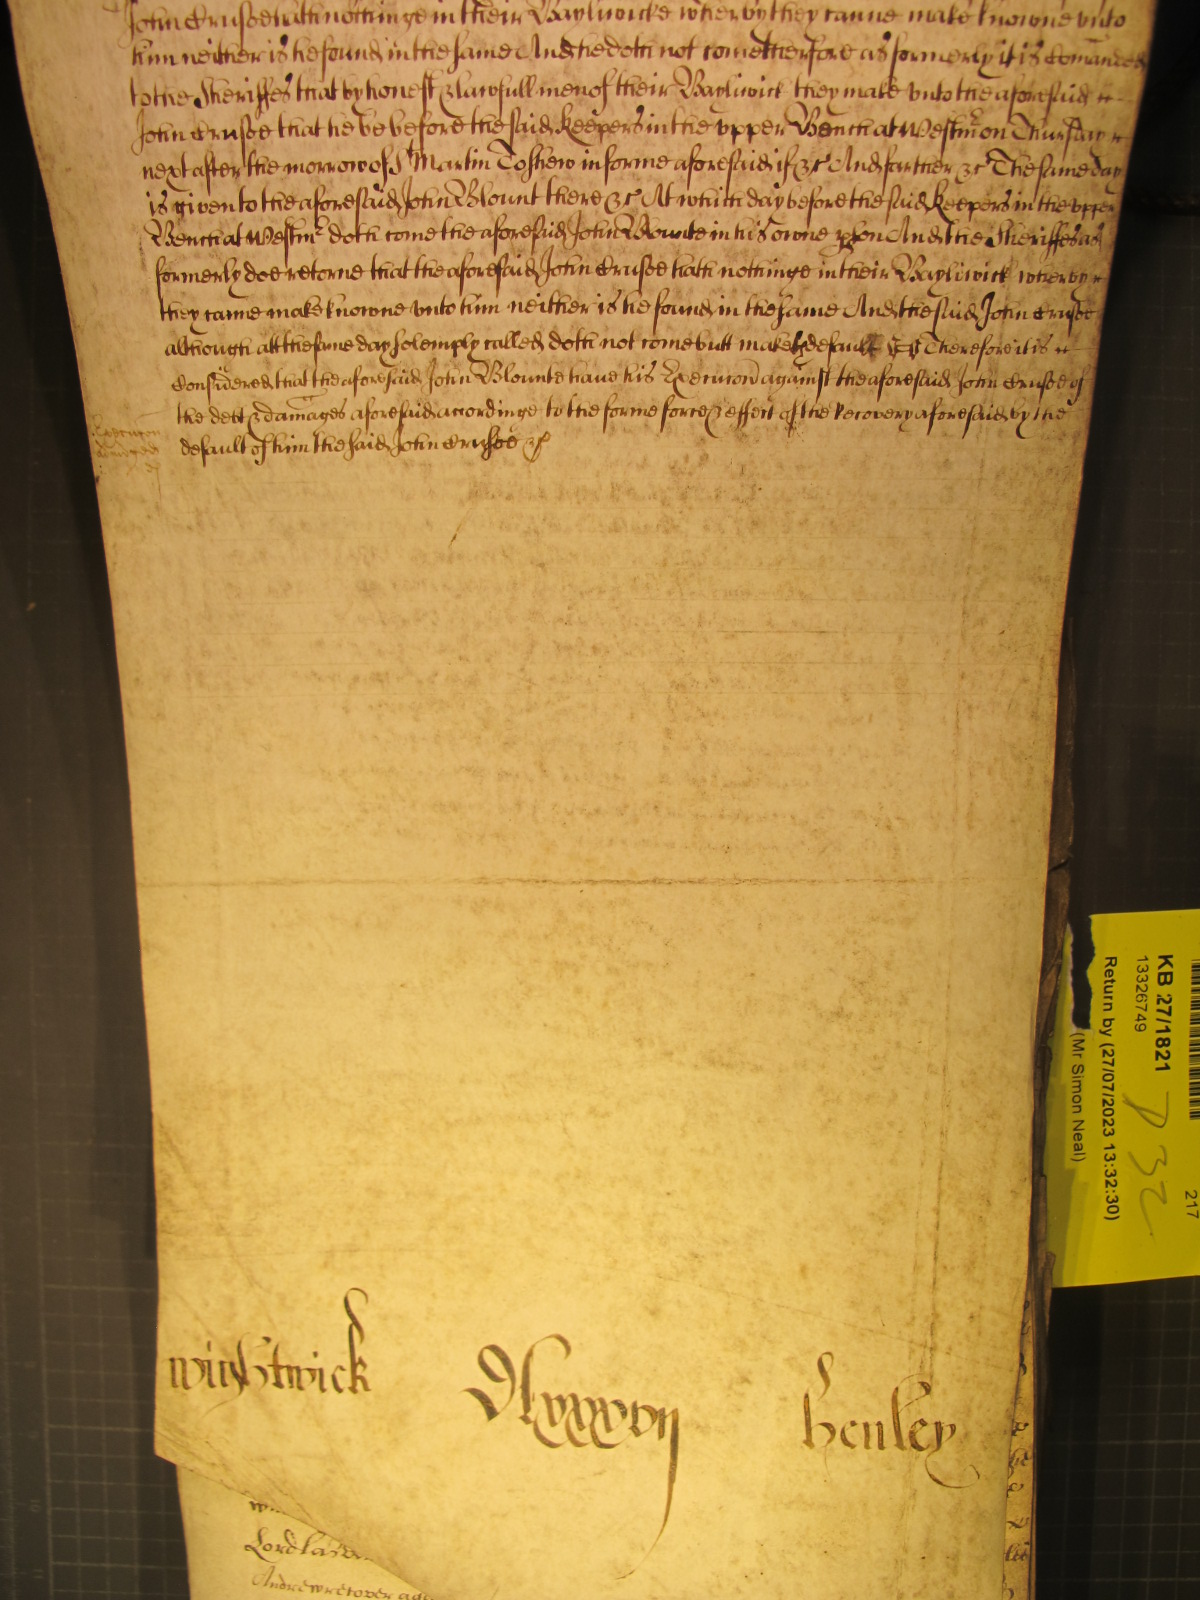 John Crusoe hath nothinge in their Baylywicke wherby they canne make knowne unto
him neither is he found in the same And he doth not come therfore as formerly it is Comanded
to the Sheriffes that by honest & lawfull men of their Baylywick they make vnto the aforesaid
John Crusoe that he be before the said Keepers in the vpper Bench at Westmr on Thursday
next after the morrow of St Martin To shew in forme aforesaid if &c And farther &c The same day
is given to the aforesaid John Blount there &c At which day before the said Keepers in the vpper
Bench at Westmr doth come the aforesaid John Blounte in his owne pson And the Sheriffes as
formerly doe retorne that the aforesaid John Crusoe hath nothinge in their Baylywick wherby
they canne make knowne vnto him neither is he found in the same And the said John Crusoe
although att the same day solemply called doth not come butt maketh default Therefore it is
Considered that the aforesaid John Blounte haue his Execucon against the aforesaid John Crusoe of
the dett & damages aforesaid accordinge to the forme force & effect of the Recovery aforesaid by the
default of him the said John Crusoe &c
Wightwick
Henley
Lord
Andrew
KB 27/1821
13326749
Return by (27/07/2023 13:32:30)
(Mr Simon Neal)
217
P 32